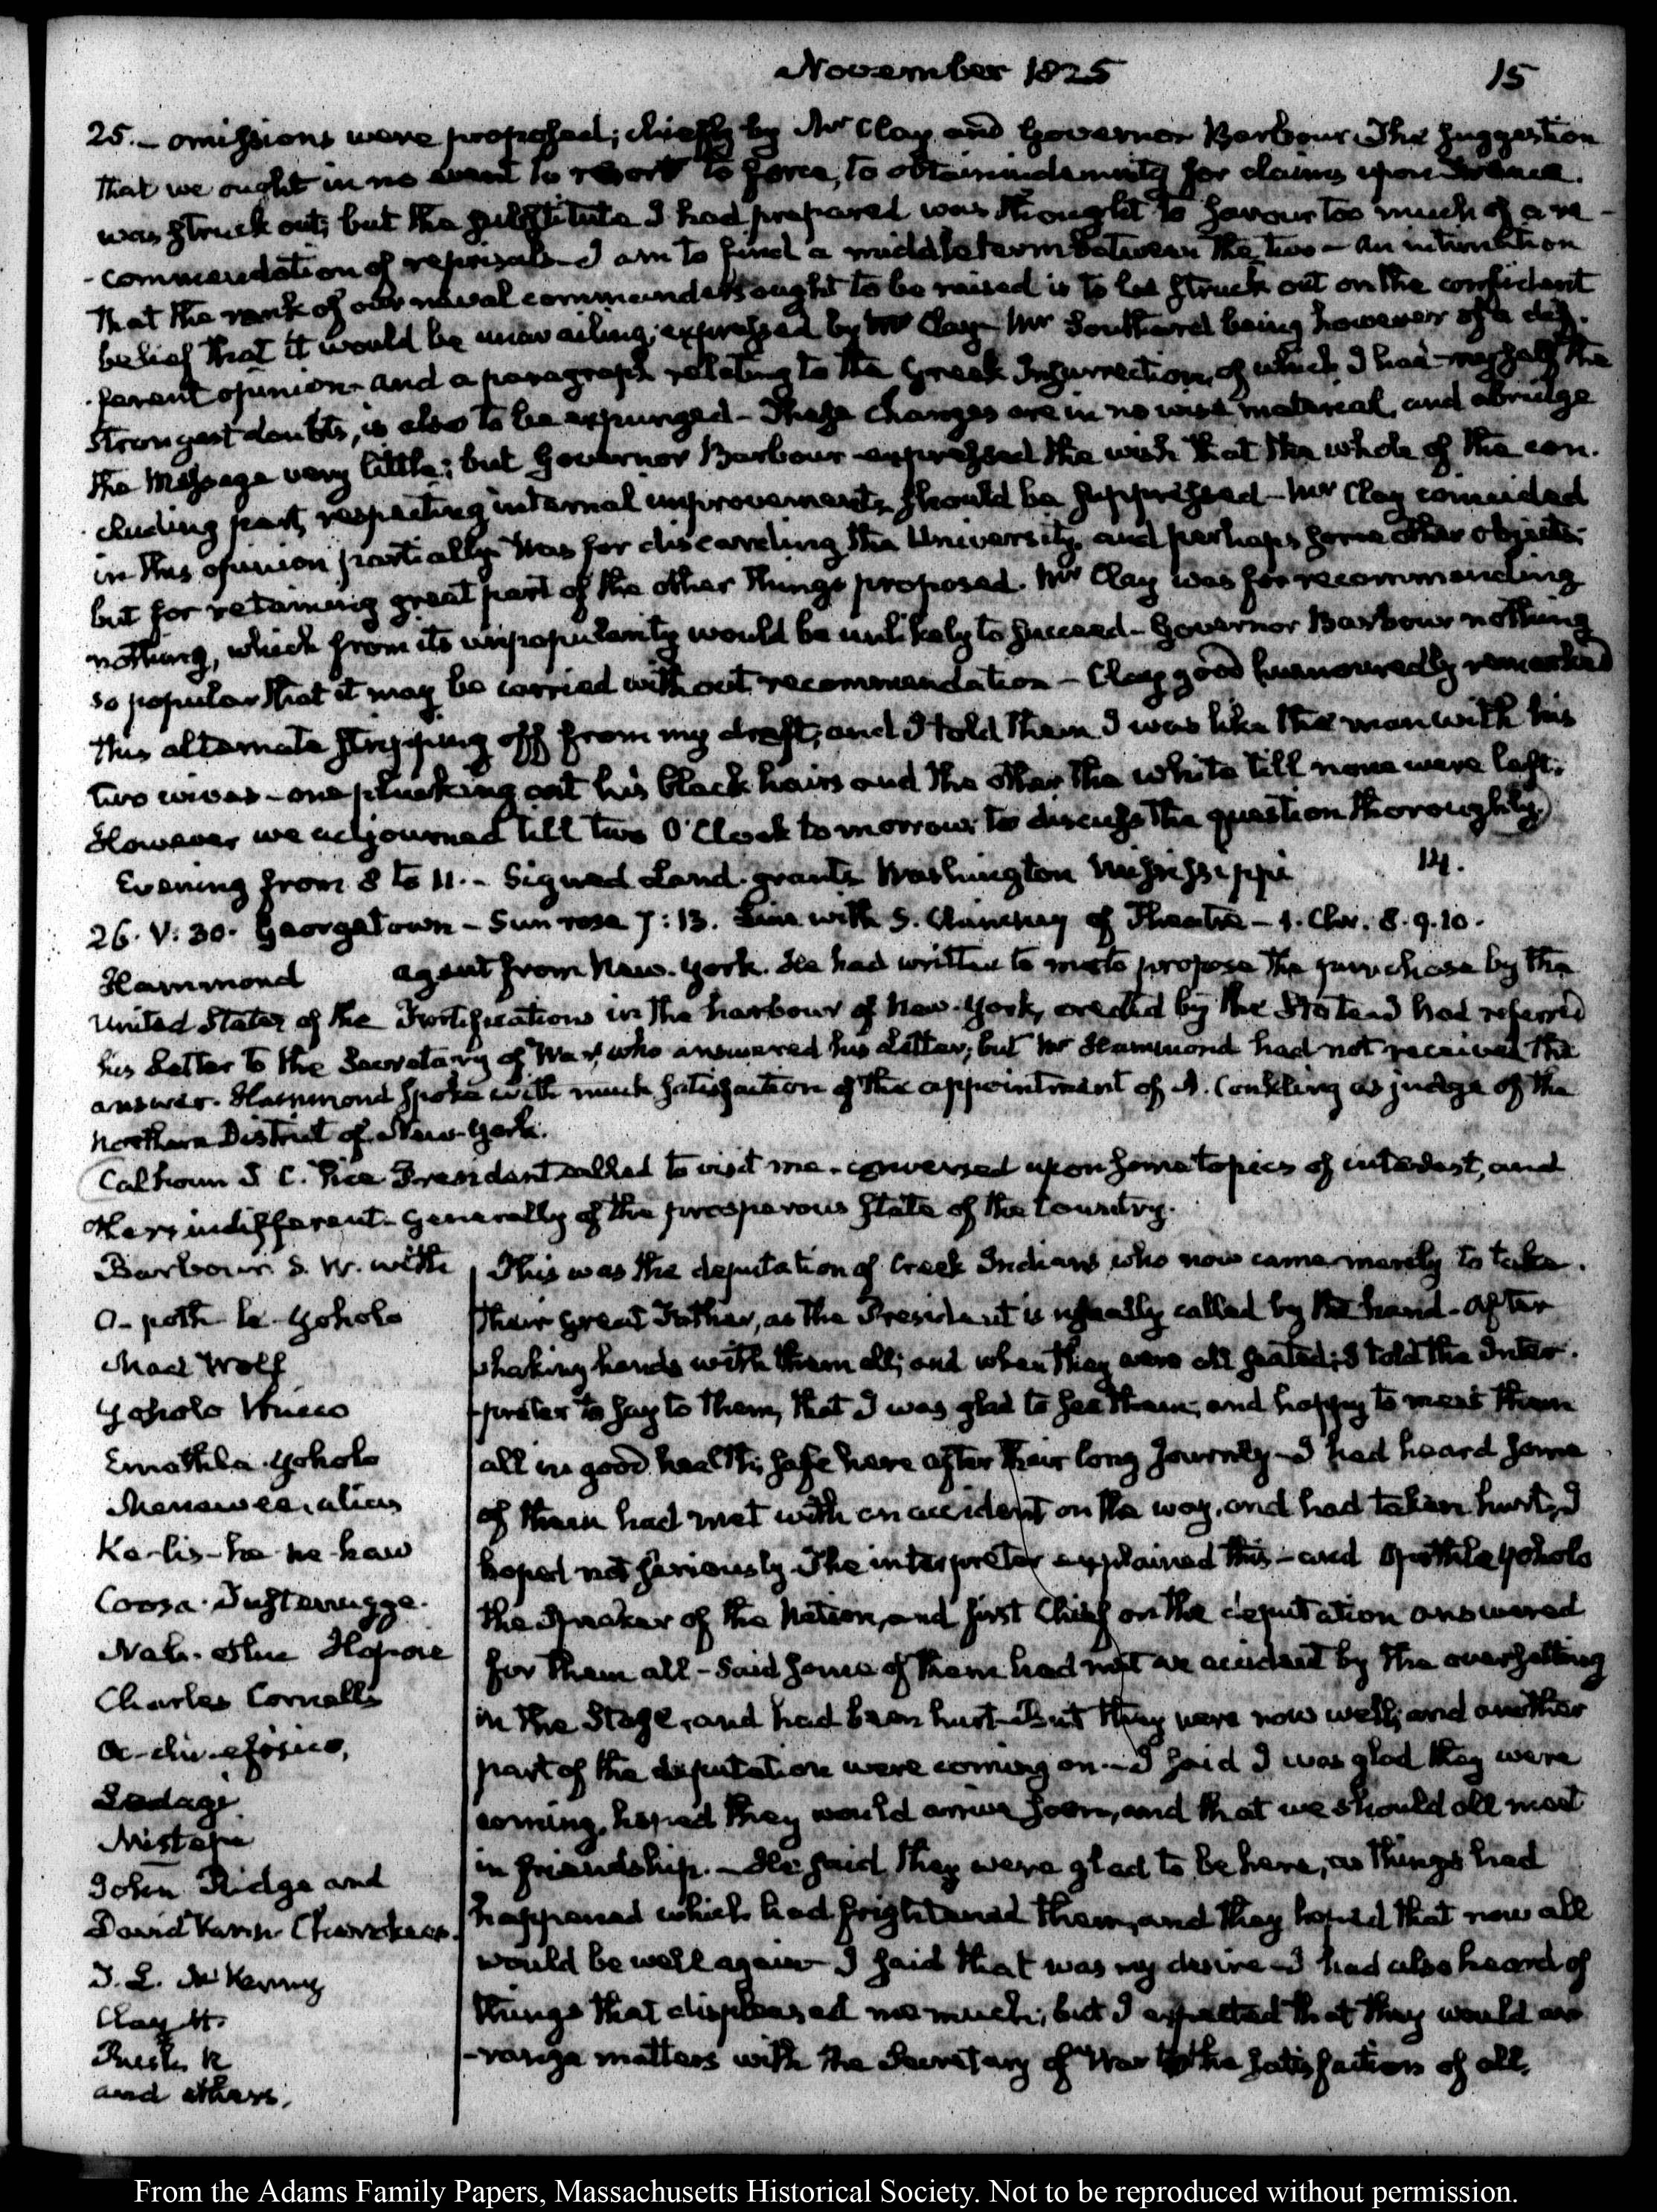 November 1825
15
25. – omissions were proposed; chiefly by Mr Clay and Governor Barbour. The suggestion
that we ought in no event to resort to force, to obtain indemnity for claims upon France.
was struck out; but the substitute I had prepared was thought to savour too much of a re-
-commendation of reprisals – I am to find a middle term between the two – An intimation
that the rank of our naval commanders ought to be raised is to be struck out on the confident
belief that it would be unavailing; expressed by Mr Clay – Mr Southard being however of a dif-
-ferent opinion – and a paragraph relating to the Greek Insurrection, of which I had myself the
strongest doubts, is also to be expunged – These changes are in no wise material, and abridge
the Message very little; but Governor Barbour expressed the wish that the whole of the con-
-cluding part, respecting internal improvements should be suppressed – Mr Clay coincided
in this opinion partially. Was for discarding the University, and perhaps some other objects;
but for retaining great part of the other things proposed. Mr Clay was for recommending
nothing, which from its unpopularity would be unlikely to succeed – Governor Barbour nothing
so popular that it may be carried without recommendation – Clay good humouredly remarked
this alternate stripping off from my draft; and I told them I was like the man with his
two wives – one plucking out his black hairs and the other the white till none were left.
However we adjourned till two O'Clock tomorrow; to discuss the question thoroughly.)
Evening from 8 to 11. – Signed Land-grants Washington Mississippi 14.
26. V: 30. Georgetown – Sun rose 7:13. Line with S. Chimney of Theatre – 1. Chr. 8. 9. 10.
Hammond agent from New-York. He had written to me to propose the purchase by the
United States of the Fortifications in the harbour of New-York, erected by the State. I had referred
his Letter to the Secretary of War, who answered his Letter; but Mr Hammond had not received the
answer. Hammond spoke with much satisfaction of the appointment of A. Conkling as judge of the
Northern District of New-York.
Calhoun J C. Vice President called to visit me – conversed upon some topics of interest, and
others indifferent – Generally of the prosperous state of the Country.
Barbour. S. W. with
O-poth-le-Yoholo
Mad Wolf
Yoholo Micco
Emathla Yoholo
Menawee, alias
Ka-lis-ha-ne-haw
Coosa Tustenugge.
Charles Cornells
Ledagi
Mistepe
John Ridge and
David Vann Cherokees.
T. L. McKenny
Clay H.
Rush R
and others.
This was the deputation of Creek Indians, who now came merely to take
their great Father, as the President is usually called by the hand – After
shaking hands with them all; and when they were all seated; I told the Inter-
-preter to say to them, that I was glad to see them, and happy to meet them
all in good health; safe here after their long journey – I had heard some
of them had met with an accident on the way, and had taken hurt, I
hoped not seriously. The interpreter explained this – and Opothle Yoholo
the Speaker of the Nation, and first Chief on the deputation answered
for them all – Said some of them had met an accident by the oversetting
in the Stage, and had been hurt – But they were now well; and another
part of the deputation were coming on – I said I was glad they were
coming, hoped they would arrive soon, and that we should all meet
in friendship. – He said they were glad to be here, as things had
happened which had frightened them, and they hoped that now all
would be well again – I said that was my desire – I had also heard of
things that displeased me much; but I expected that they would ar-
-range matters with the Secretary of War to the satisfaction of all.
From the Adams Family Papers, Massachusetts Historical Society. Not to be reproduced without permission.